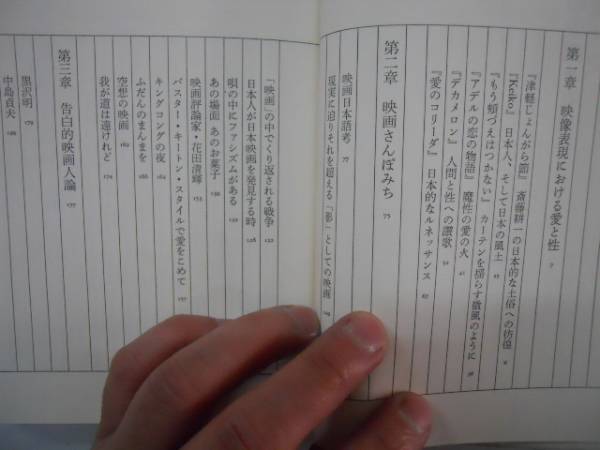 第一章 映像表現における愛と性 7
『津軽じょんがら節』 斎藤耕一の日本的な土俗への彷徨 8
『Keiko』 日本人、そして日本の風土
『もう頬づえはつかない』 カーテンを揺らす微風のように 38
『アデルの恋の物語』 魔性の愛の火
『デカメロン』 人間と性への讃歌
『愛のコリーダ』 日本的なルネッサンス 67
第二章 映画さんぽみち 75
映画日本語考 77
現実に迫りそれを超える「影」としての映画
「映画」の中でくり返される戦争 122
日本人が日本映画を発見する時 128
唄の中にファシズムがある
あの場面 あのお菓子
映画評論家・花田清輝 153
バスター・キートン・スタイルで愛をこめて 157
キングコングの夜 164
ふだんのまんまを 166
空想の映画 169
我が道は遠けれど 174
第三章 告白的映画人論 177
黒沢明 179
中島貞夫